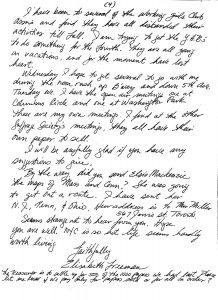 (4)
I have been to several of the Working Girls Club
Rooms and find they have all disbanded their
activities till fall. I am trying to get the
to do something for the fourth. They are all going
on vacations, and for the moment have lost
heart.
Wednesday I hope to get several to go with me
during the noon road up B'way and down 5th Ave.
Tuesday we have the open air meetings one at
Columbus Circle and one at Washington Park.
These are my own meetings. I find at the other
Suffrage Society meetings, they all have their
own paper to sell.
I will be awfully glad if you have any
suggestions to give.
By the way did you and Elsie Mackenzie
the maps of Mass and Conn? She was going
to get out a route. I have sent her
N.J., Penn, & Ohio. Her address is to Mrs Mills
567 Jarvis St Toronto
Seems strange not to hear from you. Hope
you are well. N/C is so hot life seems hardly
worth living.
Faithfully
Elizabeth Freeman